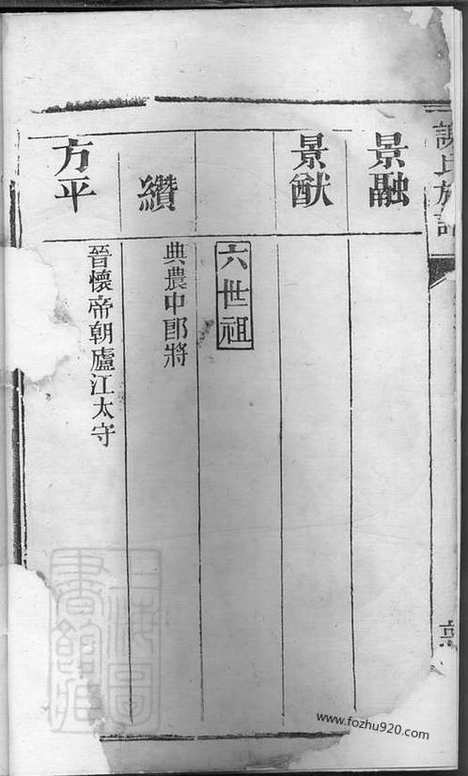 謝氏族譜
景融
景猷
六世祖
纘
典農中郎將
方平
晉懷帝朝廬江太守
上海圖書館藏
www.fozhu920.com